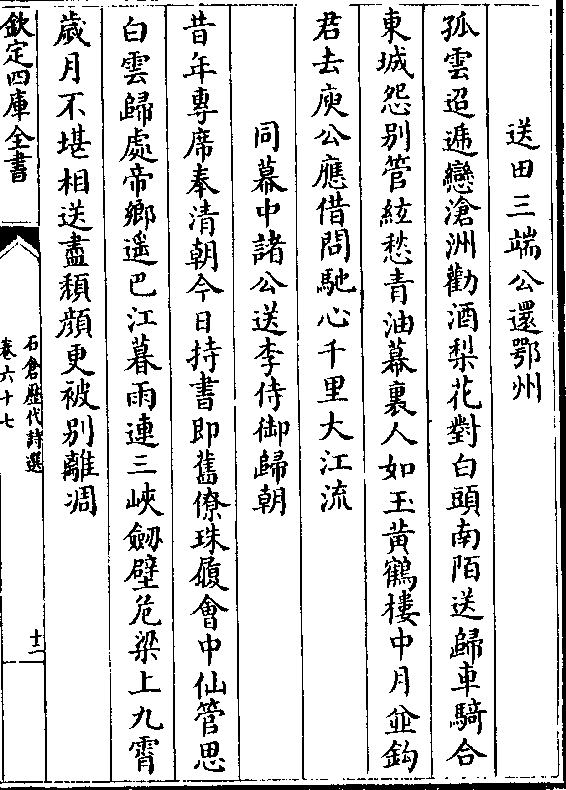 送田三端公還鄂州
孤雲迢遞戀滄洲勸酒梨花對白頭南陌送歸車騎合
東城怨别管絃愁青油幕裏人如玉黄鶴樓中月並鈎
君去庾公應借問馳心千里大江流
同幕中諸公送李侍御歸朝
昔年專席奉清朝今日持書即舊僚珠履會中仙管思
白雲歸處帝鄉遥巴江暮雨連三峽劒壁危梁上九霄
歲月不堪相送盡頽顔更被别離凋
欽定四庫全書
石倉歷代詩選
卷六十七
十二